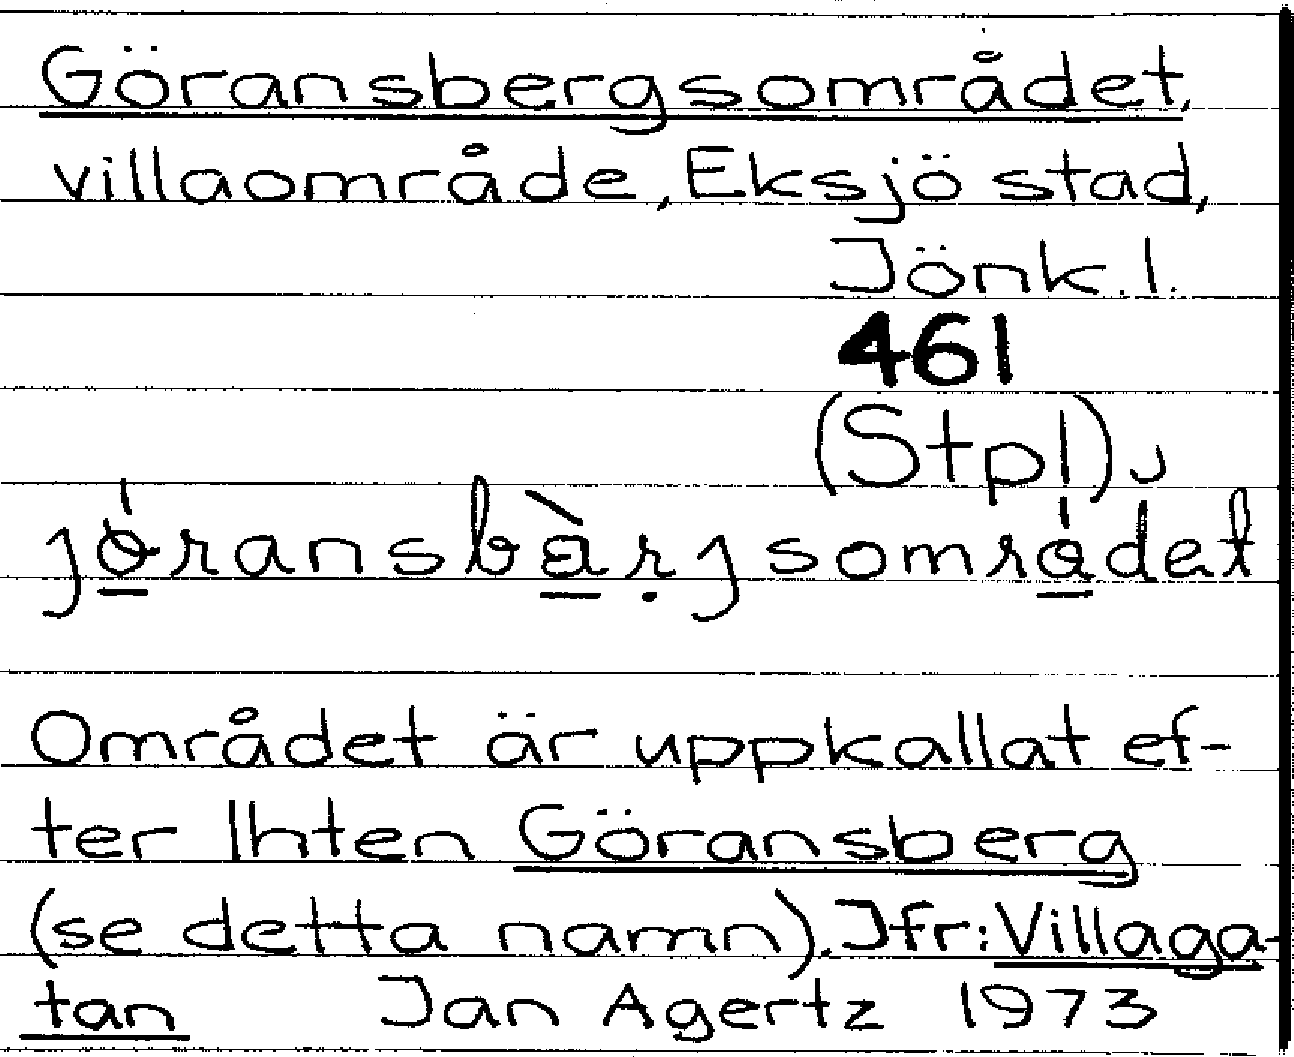 Göransbergsområdet,
villaområde, Eksjö stad,
Jönk. l.
461
(Stpl)
jö́ransbä̀rjsomrǻdet
Området är uppkallat ef-
ter lhten Göransberg
(se detta namn). Jfr: Villaga-
tan Jan Agertz 1973